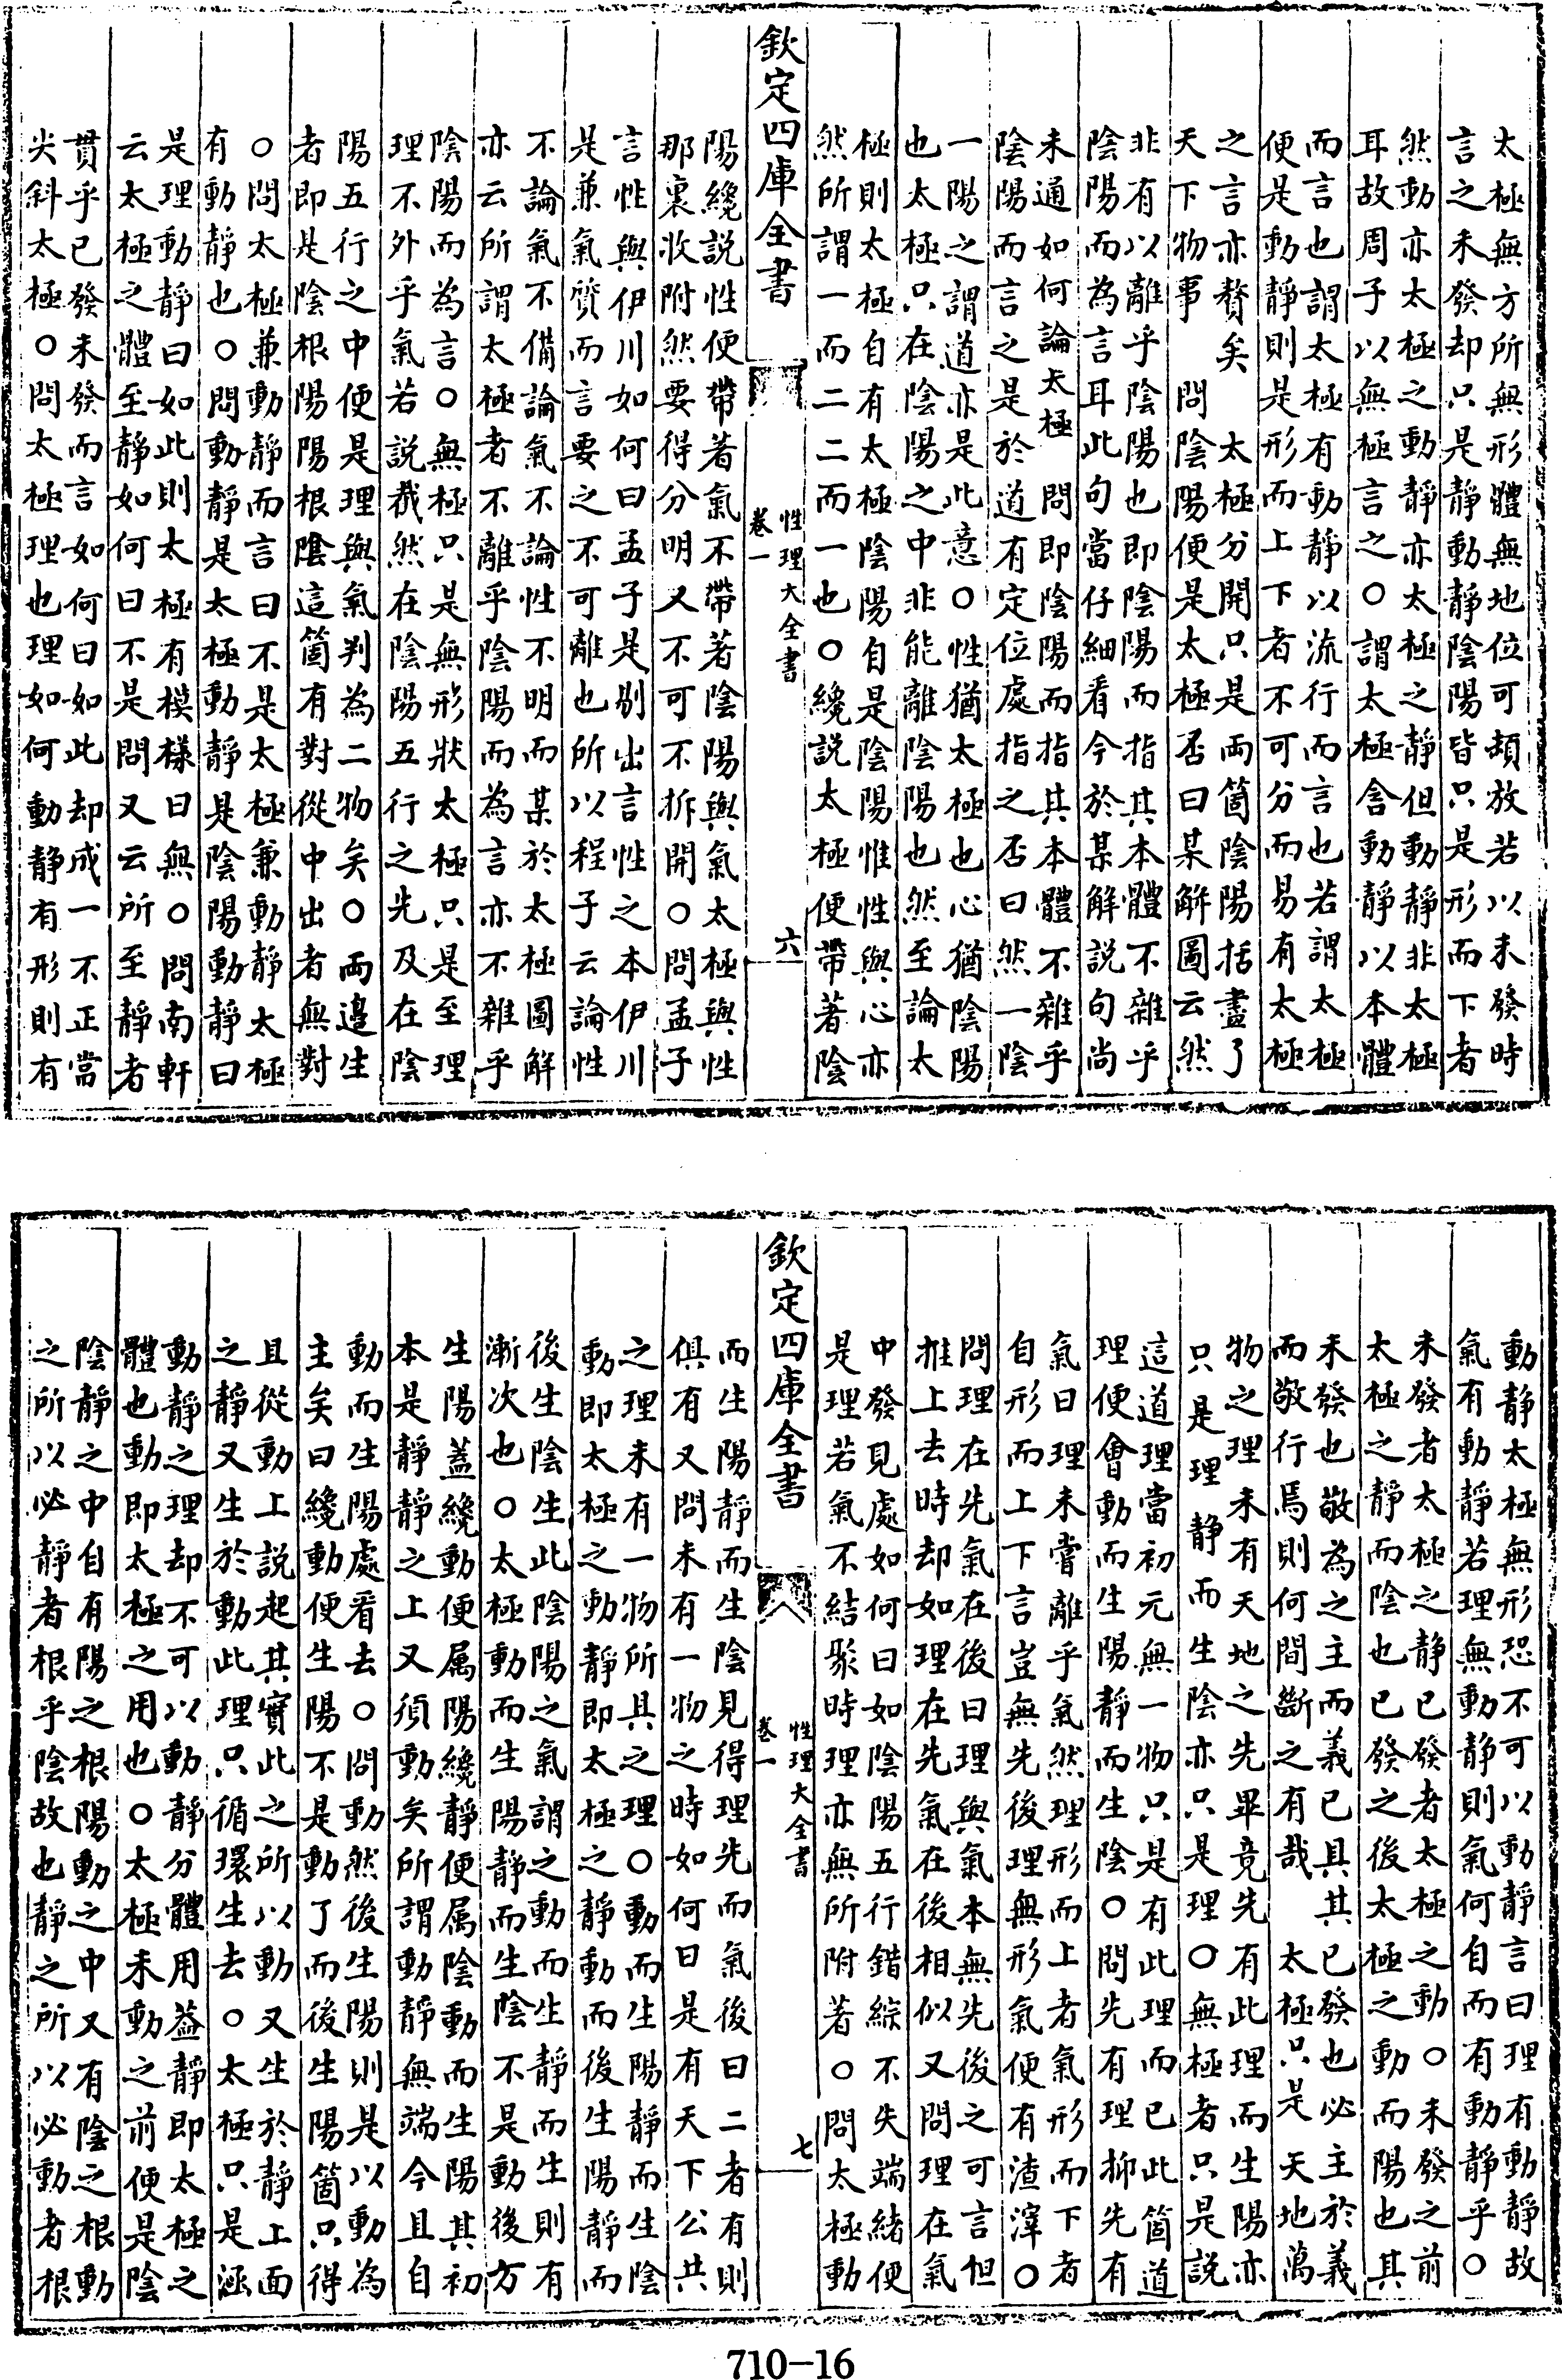 太極無方所無形體無地位可頓放若以未發時
言之未發却只是靜動靜陰陽皆只是形而下者
然動亦太極之動靜亦太極之靜但動靜非太極
耳故周子以無極言之○謂太極含動靜以本體
而言也謂太極有動靜以流行而言也若謂太極
便是動靜則是形而上下者不可分而易有太極
之言亦贅矣 太極分開只是兩箇陰陽括盡了
天下物事 問陰陽便是太極否曰某解圖云然
非有以離乎陰陽也即陰陽而指其本體不雜乎
陰陽而為言耳此句當仔細看今於某解說句尚
未通如何論太極 問即陰陽而指其本體不雜乎
陰陽而言之是於道有定位處指之否曰然一陰
一陽之謂道亦是此意○性猶太極也心猶陰陽
也太極只在陰陽之中非能離陰陽也然至論太
極則太極自有太極陰陽自是陰陽惟性與心亦
然所謂一而二二而一也○纔說太極便帶著陰
欽定四庫全書
性理大全書
卷一
六
陽纔說性便帶著氣不帶著陰陽與氣太極與性
那裏收附然要得分明又不可不拆開○問孟子
言性與伊川如何曰孟子是剔出言性之本伊川
是兼氣質而言要之不可離也所以程子云論性
不論氣不備論氣不論性不明而某於太極圖解
亦云所謂太極者不離乎陰陽而為言亦不雜乎
陰陽而為言○無極只是無形狀太極只是至理
理不外乎氣若說截然在陰陽五行之先及在陰
陽五行之中便是理與氣判為二物矣○兩邊生
者即是陰根陽陽根陰這箇有對從中出者無對
○問太極兼動靜而言曰不是太極兼動靜太極
有動靜也○問動靜是太極動靜是陰陽動靜曰
是理動靜曰如此則太極有模樣曰無○問南軒
云太極之體至靜如何曰不是問又云所至靜者
貫乎已發未發而言如何曰如此却成一不正當
尖斜太極○問太極理也理如何動靜有形則有
動靜太極無形恐不可以動靜言曰理有動靜故
氣有動靜若理無動靜則氣何自而有動靜乎○
未發者太極之靜已發者太極之動○未發之前
太極之靜而陰也已發之後太極之動而陽也其
未發也敬為之主而義已具其已發也必主於義
而敬行焉則何間斷之有哉 太極只是天地萬
物之理未有天地之先畢竟先有此理而生陽亦
只是理靜而生陰亦只是理○無極者只是說
這道理當初元無一物只是有此理而已此箇道
理便會動而生陽靜而生陰○問先有理抑先有
氣曰理未嘗離乎氣然理形而上者氣形而下者
自形而上下言豈無先後理無形氣便有渣滓○
問理在先氣在後曰理與氣本無先後之可言但
推上去時却如理在先氣在後相似又問理在氣
中發見處如何曰如陰陽五行錯綜不失端緒便
是理若氣不結聚時理亦無所附著○問太極動
欽定四庫全書
性理大全書
卷一
七
而生陽靜而生陰見得理先而氣後曰二者有則
俱有又問未有一物之時如何曰是有天下公共
之理未有一物所具之理○動而生陽靜而生陰
動即太極之動靜即太極之靜動而後生陽靜而
後生陰生此陰陽之氣謂之動而生靜而生則有
漸次也○太極動而生陽靜而生陰不是動後方
生陽蓋纔動便属陽纔靜便属陰動而生陽其初
本是靜靜之上又須動矣所謂動靜無端今且自
動而生陽處看去○問動然後生陽則是以動為
主矣曰纔動便生陽不是動了而後生陽箇只得
且從動上說起其實此之所以動又生於靜上面
之靜又生於動此理只循環生去○太極只是涵
動靜之理却不可以動靜分體用葢靜即太極之
體也動即太極之用也○太極未動之前便是陰
陰靜之中自有陽之根陽動之中又有陰之根動
之所以必靜者根乎陰故也靜之所以必動者根
710-16